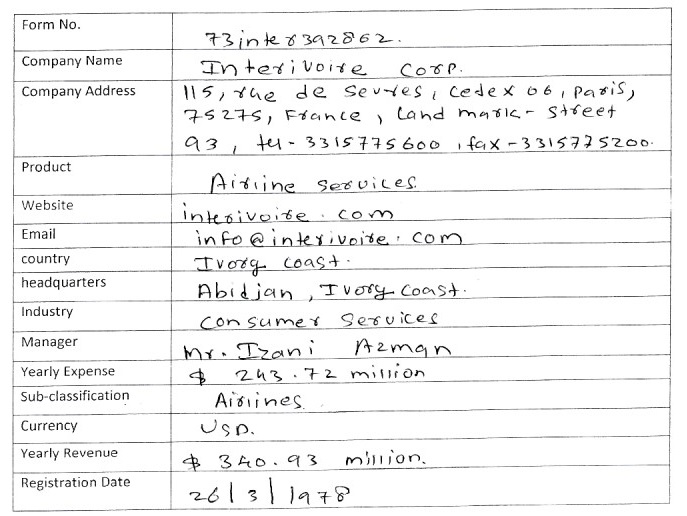 Form No. 73inter392862.
Company Name Interivoire Corp.
Company Address 115, rue de Sevres, Cedex 06, Paris,
75275, France, Land mark- Street
93, tel - 3315775600, fax - 3315775200.
Product Airline Services.
Website interivoire.com
Email info@interivoire.com
country Ivory Coast.
headquarters Abidjan, Ivory Coast.
Industry Consumer Services
Manager Mr. Izani Azman
Yearly Expense $ 243.72 million
Sub-classification Airlines.
Currency USD.
Yearly Revenue $ 340.93 million.
Registration Date 26/3/1978